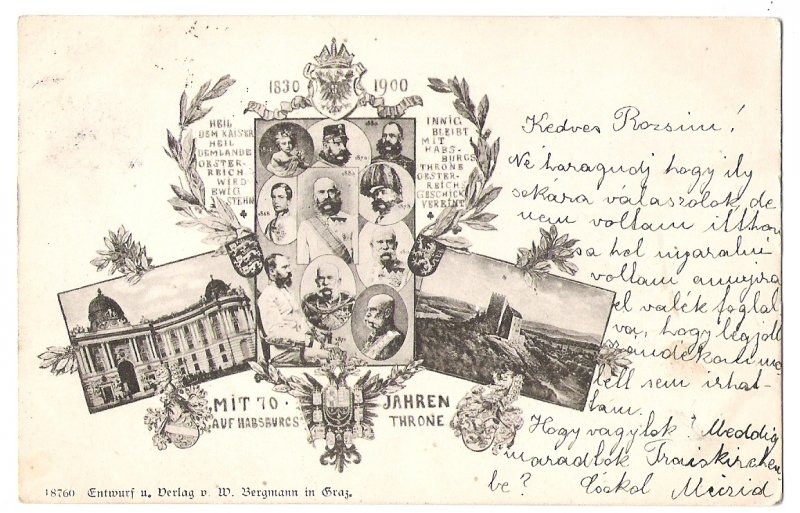 1830 1900
HEIL
DEM KAISER
HEIL
DEMLANDE
OESTER-
REICH
WIRD
EWIG
STEHN
INNIG
BLEIBT
MIT
HABS-
BURGS
THRONE
OESTER-
REICHS
GESCHICK
VEREINT
1848
MIT 70 JAHREN
AUF HABSBURGS THRONE
18760 Entwurf u. Verlag v. W. Bergmann in Graz.
Kedves Rozsim!
Ne haragudj hogy ily
sokara válaszolok, de
nem voltam itthon
sa hol nyaralni
voltam annyira
el valék foglal
va, hogy legjobb
szándékom mel
lett sem irhat-
tam.
Hogy vagytok? Meddig
maradtok Traiskirchen
be? Csókol